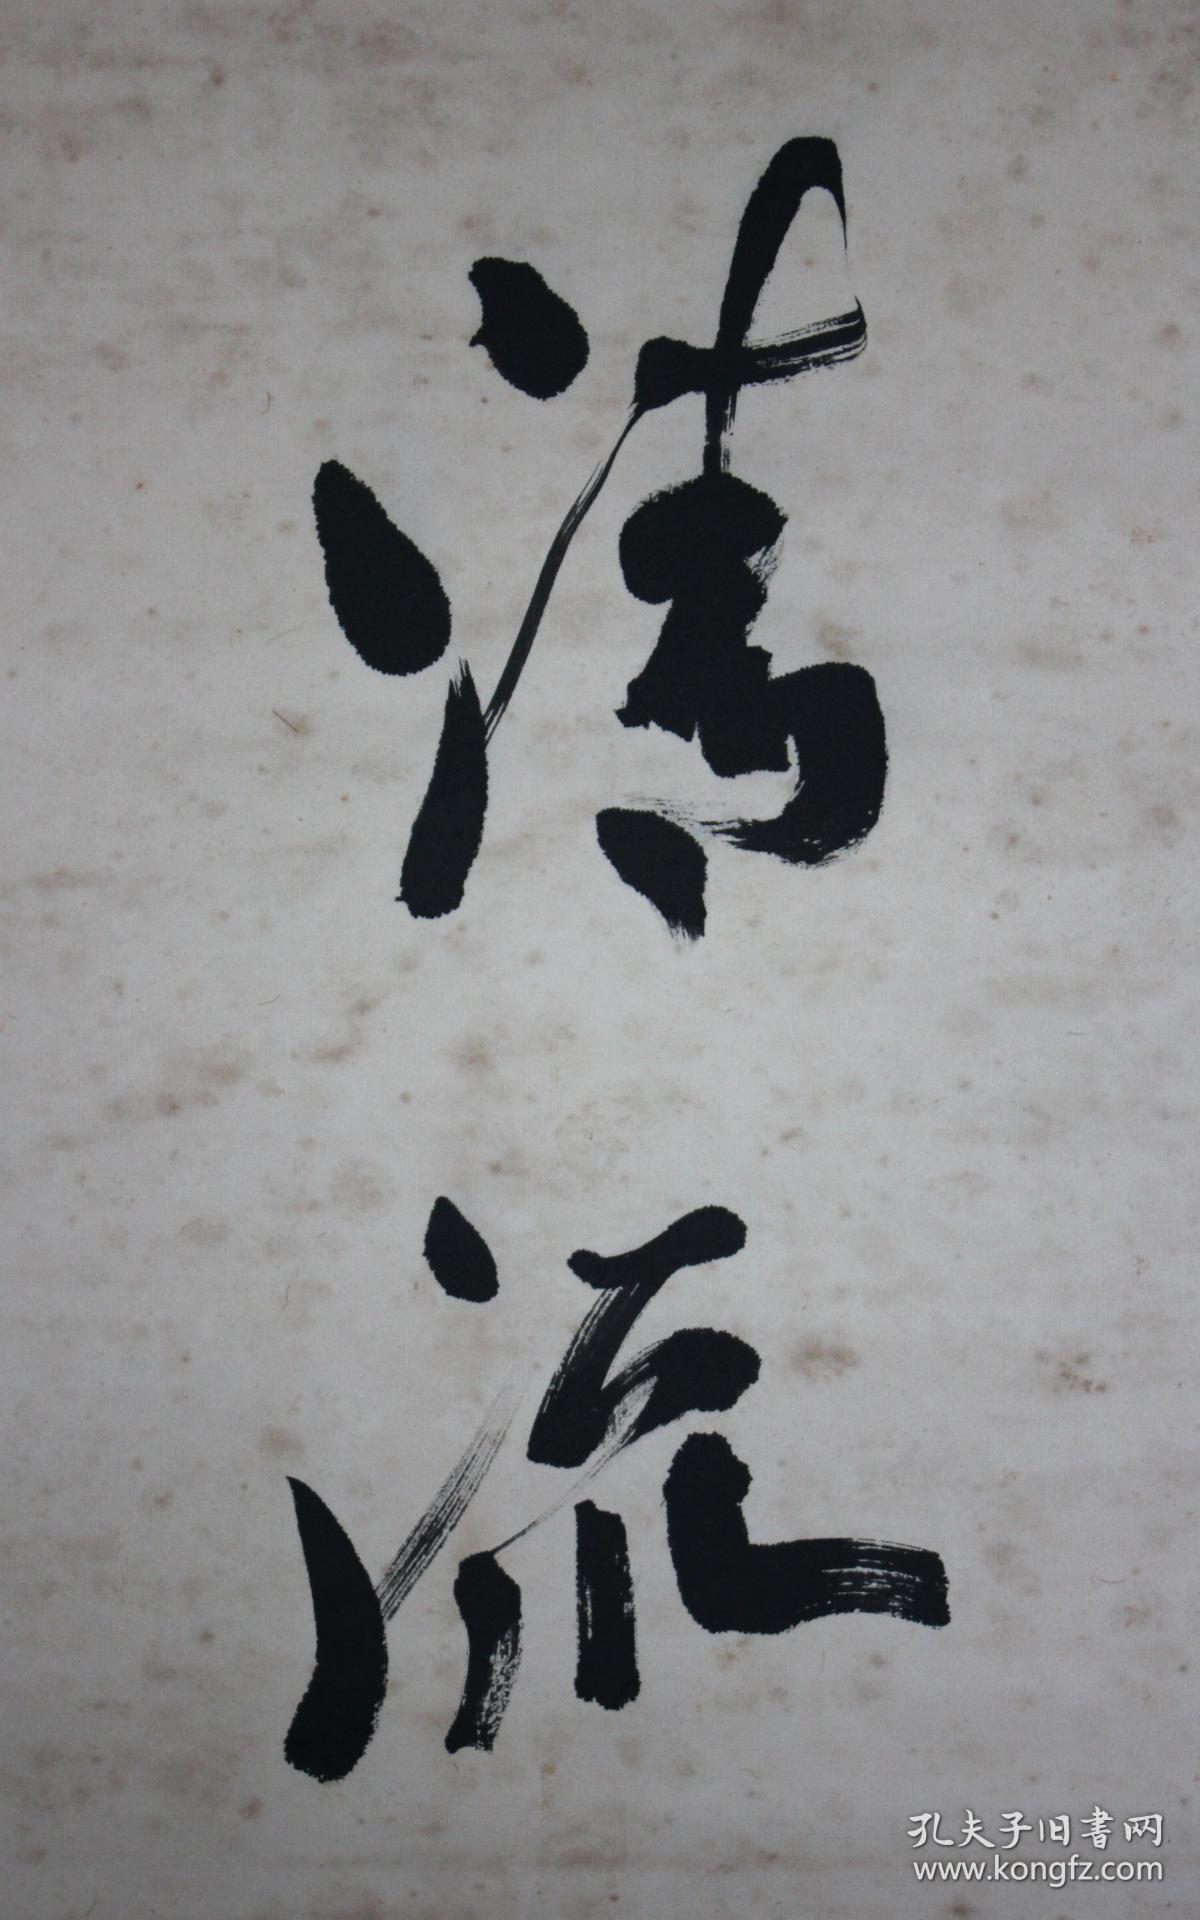 清
流
孔夫子旧書网
www.kongfz.com